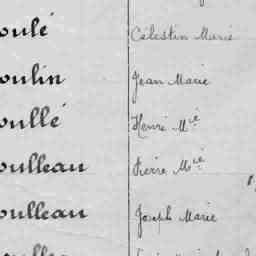 oulé Célestin Marie
oulin Jean Marie
oullé Henri Mie
oulleau Pierre Mie
oulleau Joseph Marie